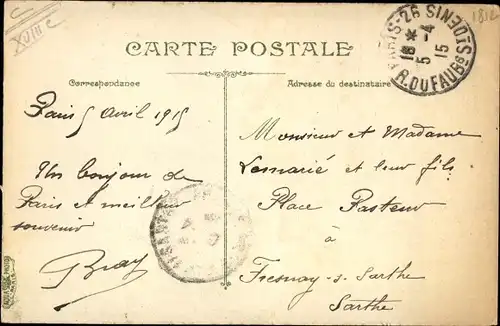 XVIII e
1812
PARIS-26
R. DU FAUBG ST DENIS
18 *
5 -4
15
CARTE POSTALE
Correspondance
Adresse du destinataire
Paris 5 Avril 1915
Un bonjour de
Paris et meilleur
souvenir
Bray
Monsieur et Madame
Lemarié et leur fils
Place Pasteur
à
Fresnay-s-Sarthe
Sarthe